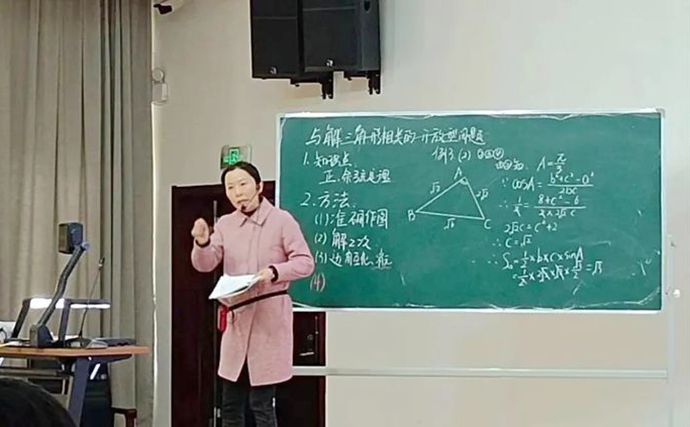 与解三角形相关的开放型问题
1. 知识点
正、余弦定理
2. 方法
(1) 准确作图
(2) 解2次
(3) 边角互化
(4)
例3 (2)
A
B
C
√2
2√2
√6
A=π/3
∴ cosA = (b²+c²-a²)/2bc
∴ 1/2 = (8+c²-6)/(2×2√2c)
2√2c = c²+2
c=√2
∴ S△ = 1/2×b×c×sinA
= 1/2×2√2×√2×√3/2 = √3